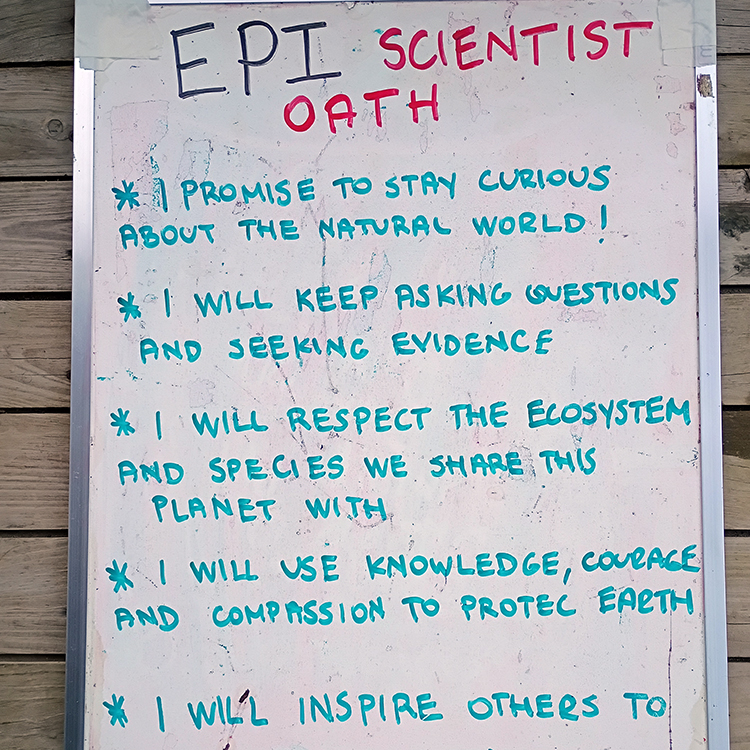 EPI SCIENTIST
OATH
* I PROMISE TO STAY CURIOUS
ABOUT THE NATURAL WORLD!
* I WILL KEEP ASKING QUESTIONS
AND SEEKING EVIDENCE
* I WILL RESPECT THE ECOSYSTEM
AND SPECIES WE SHARE THIS
PLANET WITH
* I WILL USE KNOWLEDGE, COURAGE
AND COMPASSION TO PROTEC EARTH
* I WILL INSPIRE OTHERS TO